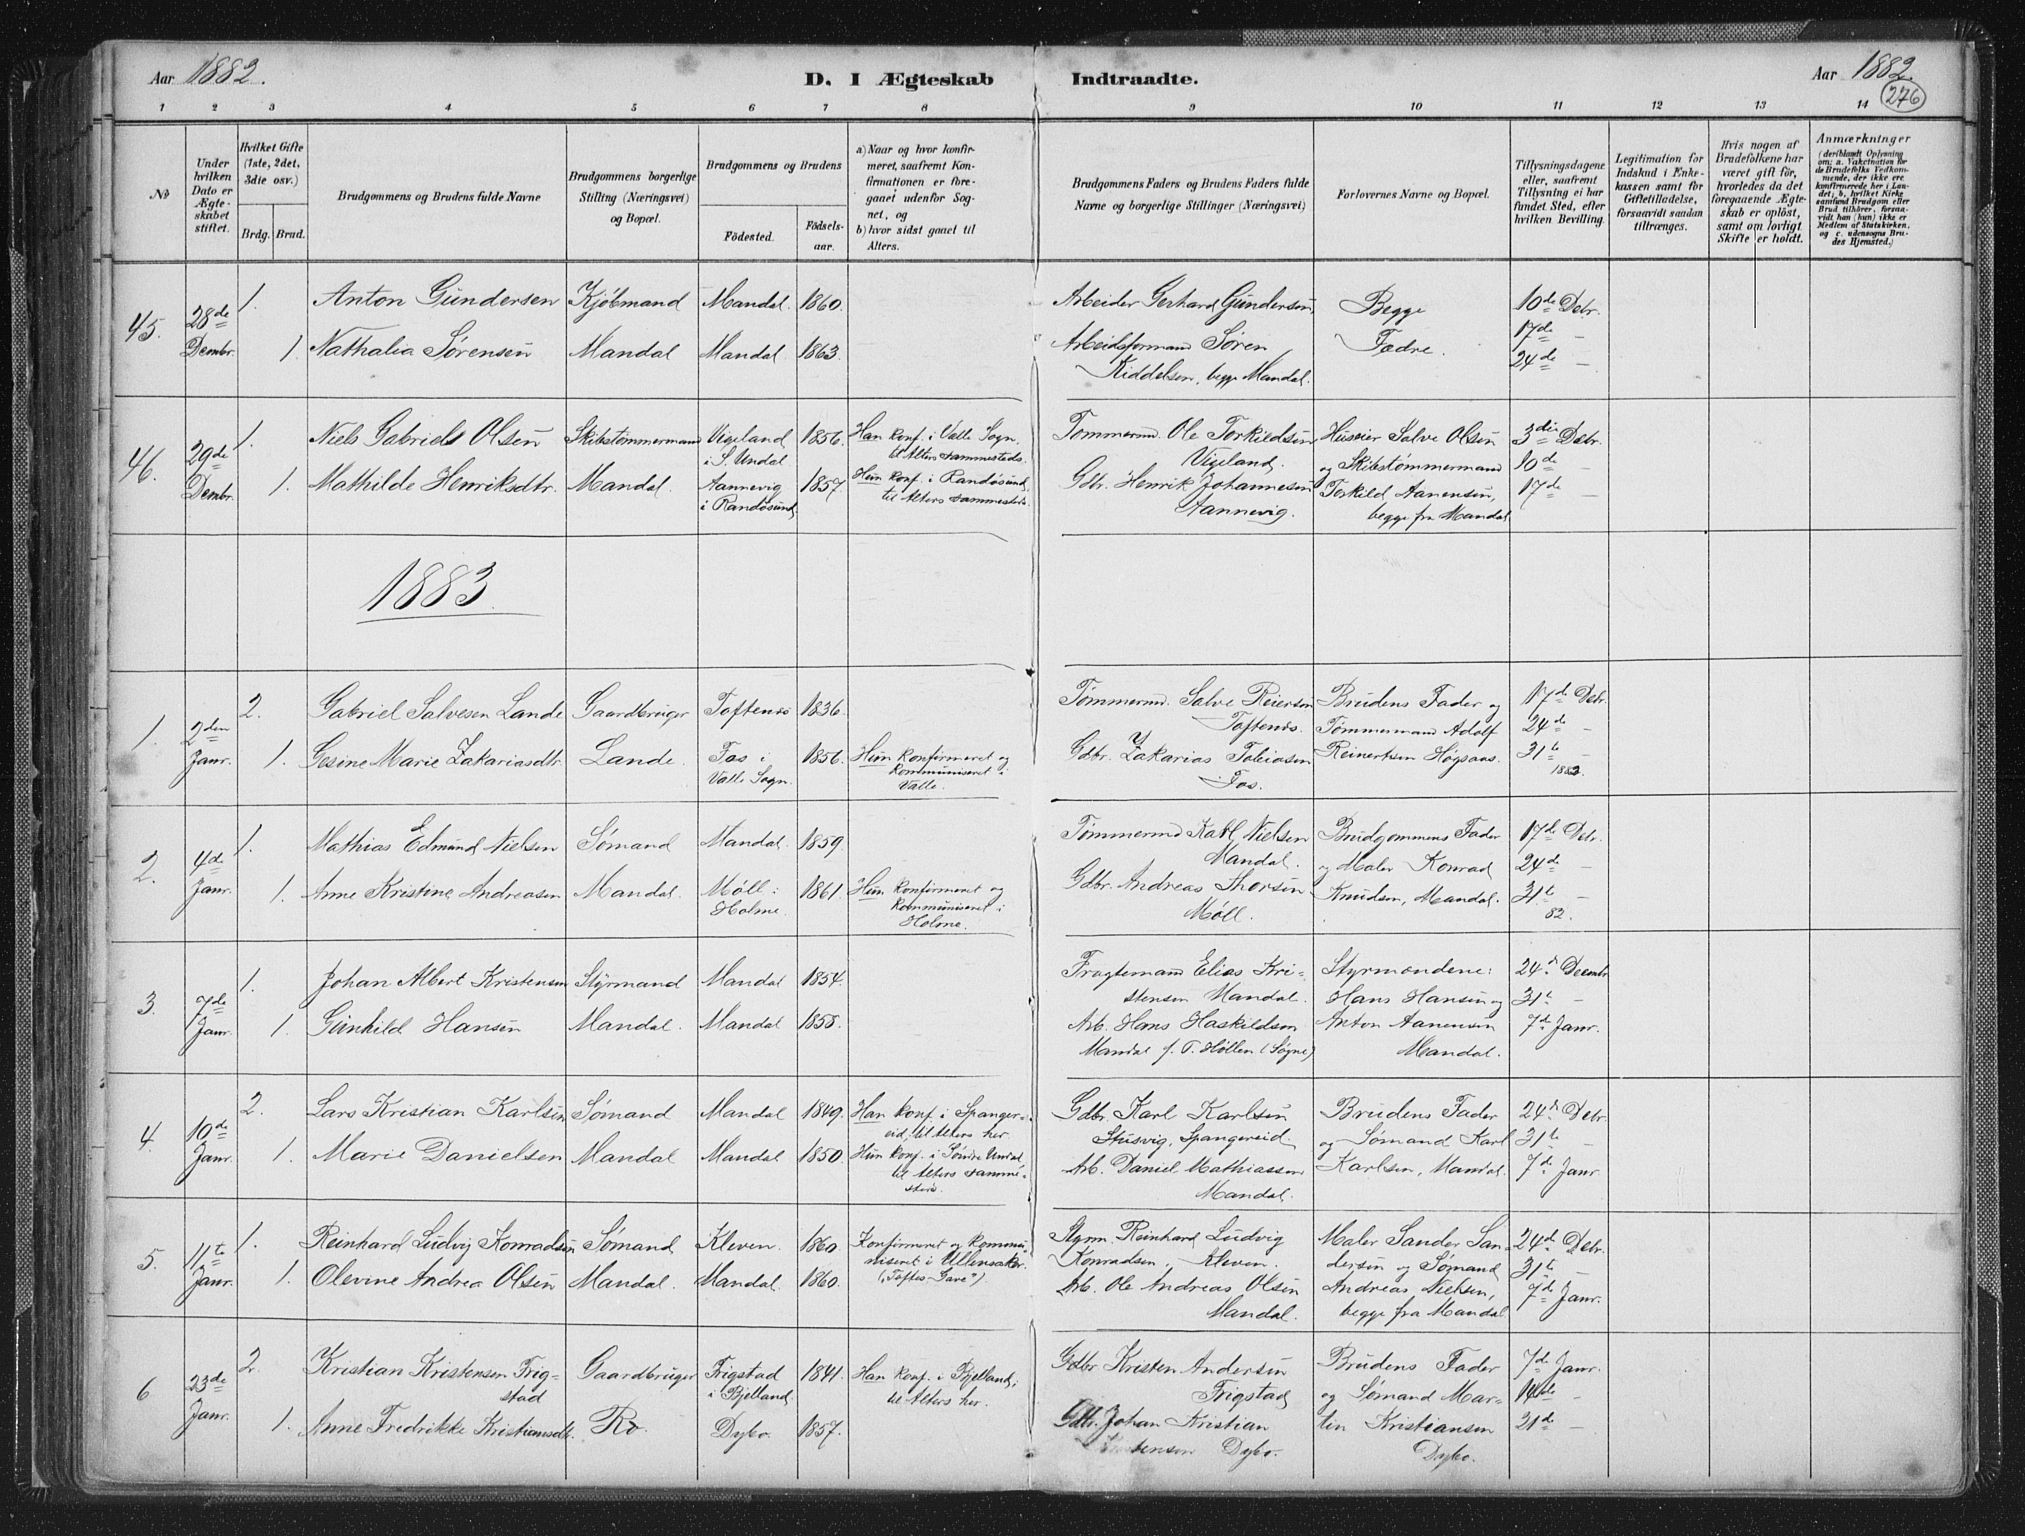 Aar 1882.
D. I Ægteskab Indtraadte.
Aar 1882.
276
1 2 3 4 5 6 7 8 9 10 11 12 13 14
No
Under hvilken Dato er Ægteskabet stiftet.
Hvilket Gifte (1ste, 2det, 3die osv.)
Brdg. Brud.
Brudgommens og Brudens fulde Navne
Brudgommens borgerlige Stilling (Næringsvei) og Bopæl.
Brudgommens og Brudens
Fødested.
Fødselsaar.
a) Naar og hvor konfirmeret, saafremt Konfirmationen er foregaaet udenfor Sognet, og
b) hvor sidst gaaet til Alters.
Brudgommens Faders og Brudens Faders fulde Navne og borgerlige Stillinger (Næringsvei)
Forlovernes Navne og Bopæl.
Tillysningsdagene eller, saafremt Tillysning ei har fundet Sted, efter hvilken Bevilling.
Legitimation for Indskud i Enkekassen samt for Giftetilladelse, forsaavidt saadan tiltrænges.
Hvis nogen af Brudefolkene har været gift før, hvorledes da det foregaaende Ægteskab er opløst, samt om lovligt Skifte er holdt.
Anmærkninger
(deriblandt Oplysning om: a. Vakcination for de Brudefolks Vedkommende, der ikke ere konfirmerede her i Landet; b, hvilket Kirkesamfund Brudgom eller Brud tilhører, forsaavidt han (hun) ikke er Medlem af Statskirken, og c. udensogns Brudes Hjemsted.)
45. 28de Dembr. 1.
Anton Gundersen Kjøbmand Mandal. 1860.
Arbeider Gerhard Gundersen
Begge
10de Debr.
1. Nathalia Sørensen Mandal Mandal 1863.
Arbeidsformand Søren
Kiddelsen, begge Mandal.
Fædre.
17de —
24de —
46. 29de Dembr. 1.
Niels Gabriels Olsen Skibstømmermand Vigeland i S. Undal 1856.
Han konf. i Valle Sogn, til Alters sammesteds.
Tømmermd. Ole Torkildsen
Vigeland.
Huseier Salve Olsen
og Skibstømmermand
3die Debr.
10de —
1. Mathilde Henriksdtr. Mandal. Aannevig i Randøsund. 1857.
Hun konf. i Randøsund, til Alters sammesteds.
Gdbr. Henrik Johannesen
Aannevig.
Torkild Aanensen,
begge fra Mandal
17de —
1883.
1. 2den Janr. 2.
Gabriel Salvesen Lande Gaardbruger Toftenes 1836.
Tømmermd. Salve Reiersen
Toftenes.
Brudens Fader og
Tømmermand Adolf
17de Debr.
24de —
1. Gesine Marie Zakariasdtr. Lande. Fos i Valle Sogn. 1856.
Hun konfirmeret og kommuniseret i Valle.
Gdbr. Zakarias Tobiasen
Fos.
Reinertsen Høgsaas.
31te —
1882.
2. 4de Janr. 1.
Mathias Edmund Nielsen Sømand Mandal. 1859.
Tømmermd Karl Nielsen
Mandal.
Brudgommens Fader
og Maler Konrad
17de Debr.
24de —
1. Anne Kristine Andreasen Mandal. Møll i Holme. 1861.
Hun konfirmeret og kommuniseret i Holme.
Gdbr. Andreas Thorsen
Møll.
Knudsen, Mandal.
31te —
82.
3. 7de Janr. 1.
Johan Albert Kristensen Styrmand Mandal 1854.
Fragtemand Elias Kristensen Mandal.
Styrmændene:
Hans Hansen og
24de Decembr
31te —
1. Gunhild Hansen Mandal. Mandal 1855.
Arb. Hans Haskildsen
Mandal f. T. Høllen (Søgne)
Anton Aanensen
Mandal.
7de Janr.
4. 10de Janr. 2.
Lars Kristian Karlsen Sømand Mandal 1849.
Han konf. i Spangereid, til Alters her.
Gdbr. Karl Karlsen
Stusvig, Spangereid.
Brudens Fader
og Sømand Karl
24de Debr.
31te —
1. Marie Danielsen Mandal Mandal 1850.
Hun konf. i Søndre Undal til Alters sammesteds.
Arb. Daniel Mathiassen
Mandal.
Karlsen, Mandal.
7de Janr
5. 11te Janr. 1.
Reinhard Ludvig Konradsen Sømand Kleven. 1860
Konfirmeret og kommuniseret i Ullensaker. („Toftes Gave")
Styrm. Reinhard Ludvig
Konradsen, Kleven.
Maler Sander Sandersen og Sømand
24de Debr.
31te —
1. Olevine Andrea Olsen Mandal. Mandal. 1860.
Arb. Ole Andreas Olsen
Mandal.
Andreas Nielsen,
begge fra Mandal
7de Janr.
6 23de Janr. 2.
Kristian Kristensen Frigstad Gaardbruger Frigstad i Bjelland 1841.
Han konf. i Bjelland, til Alters her.
Gdbr Kristen Andersen
Frigstad
Brudens Fader
og Sømand Martin Kristiansen
Dybo.
7de Janr.
14de —
1. Anne Fredrikke Kristiansdt. Ro. Dybo. 1857.
Gdbr. Johan Kristian
Dybo.
21de —